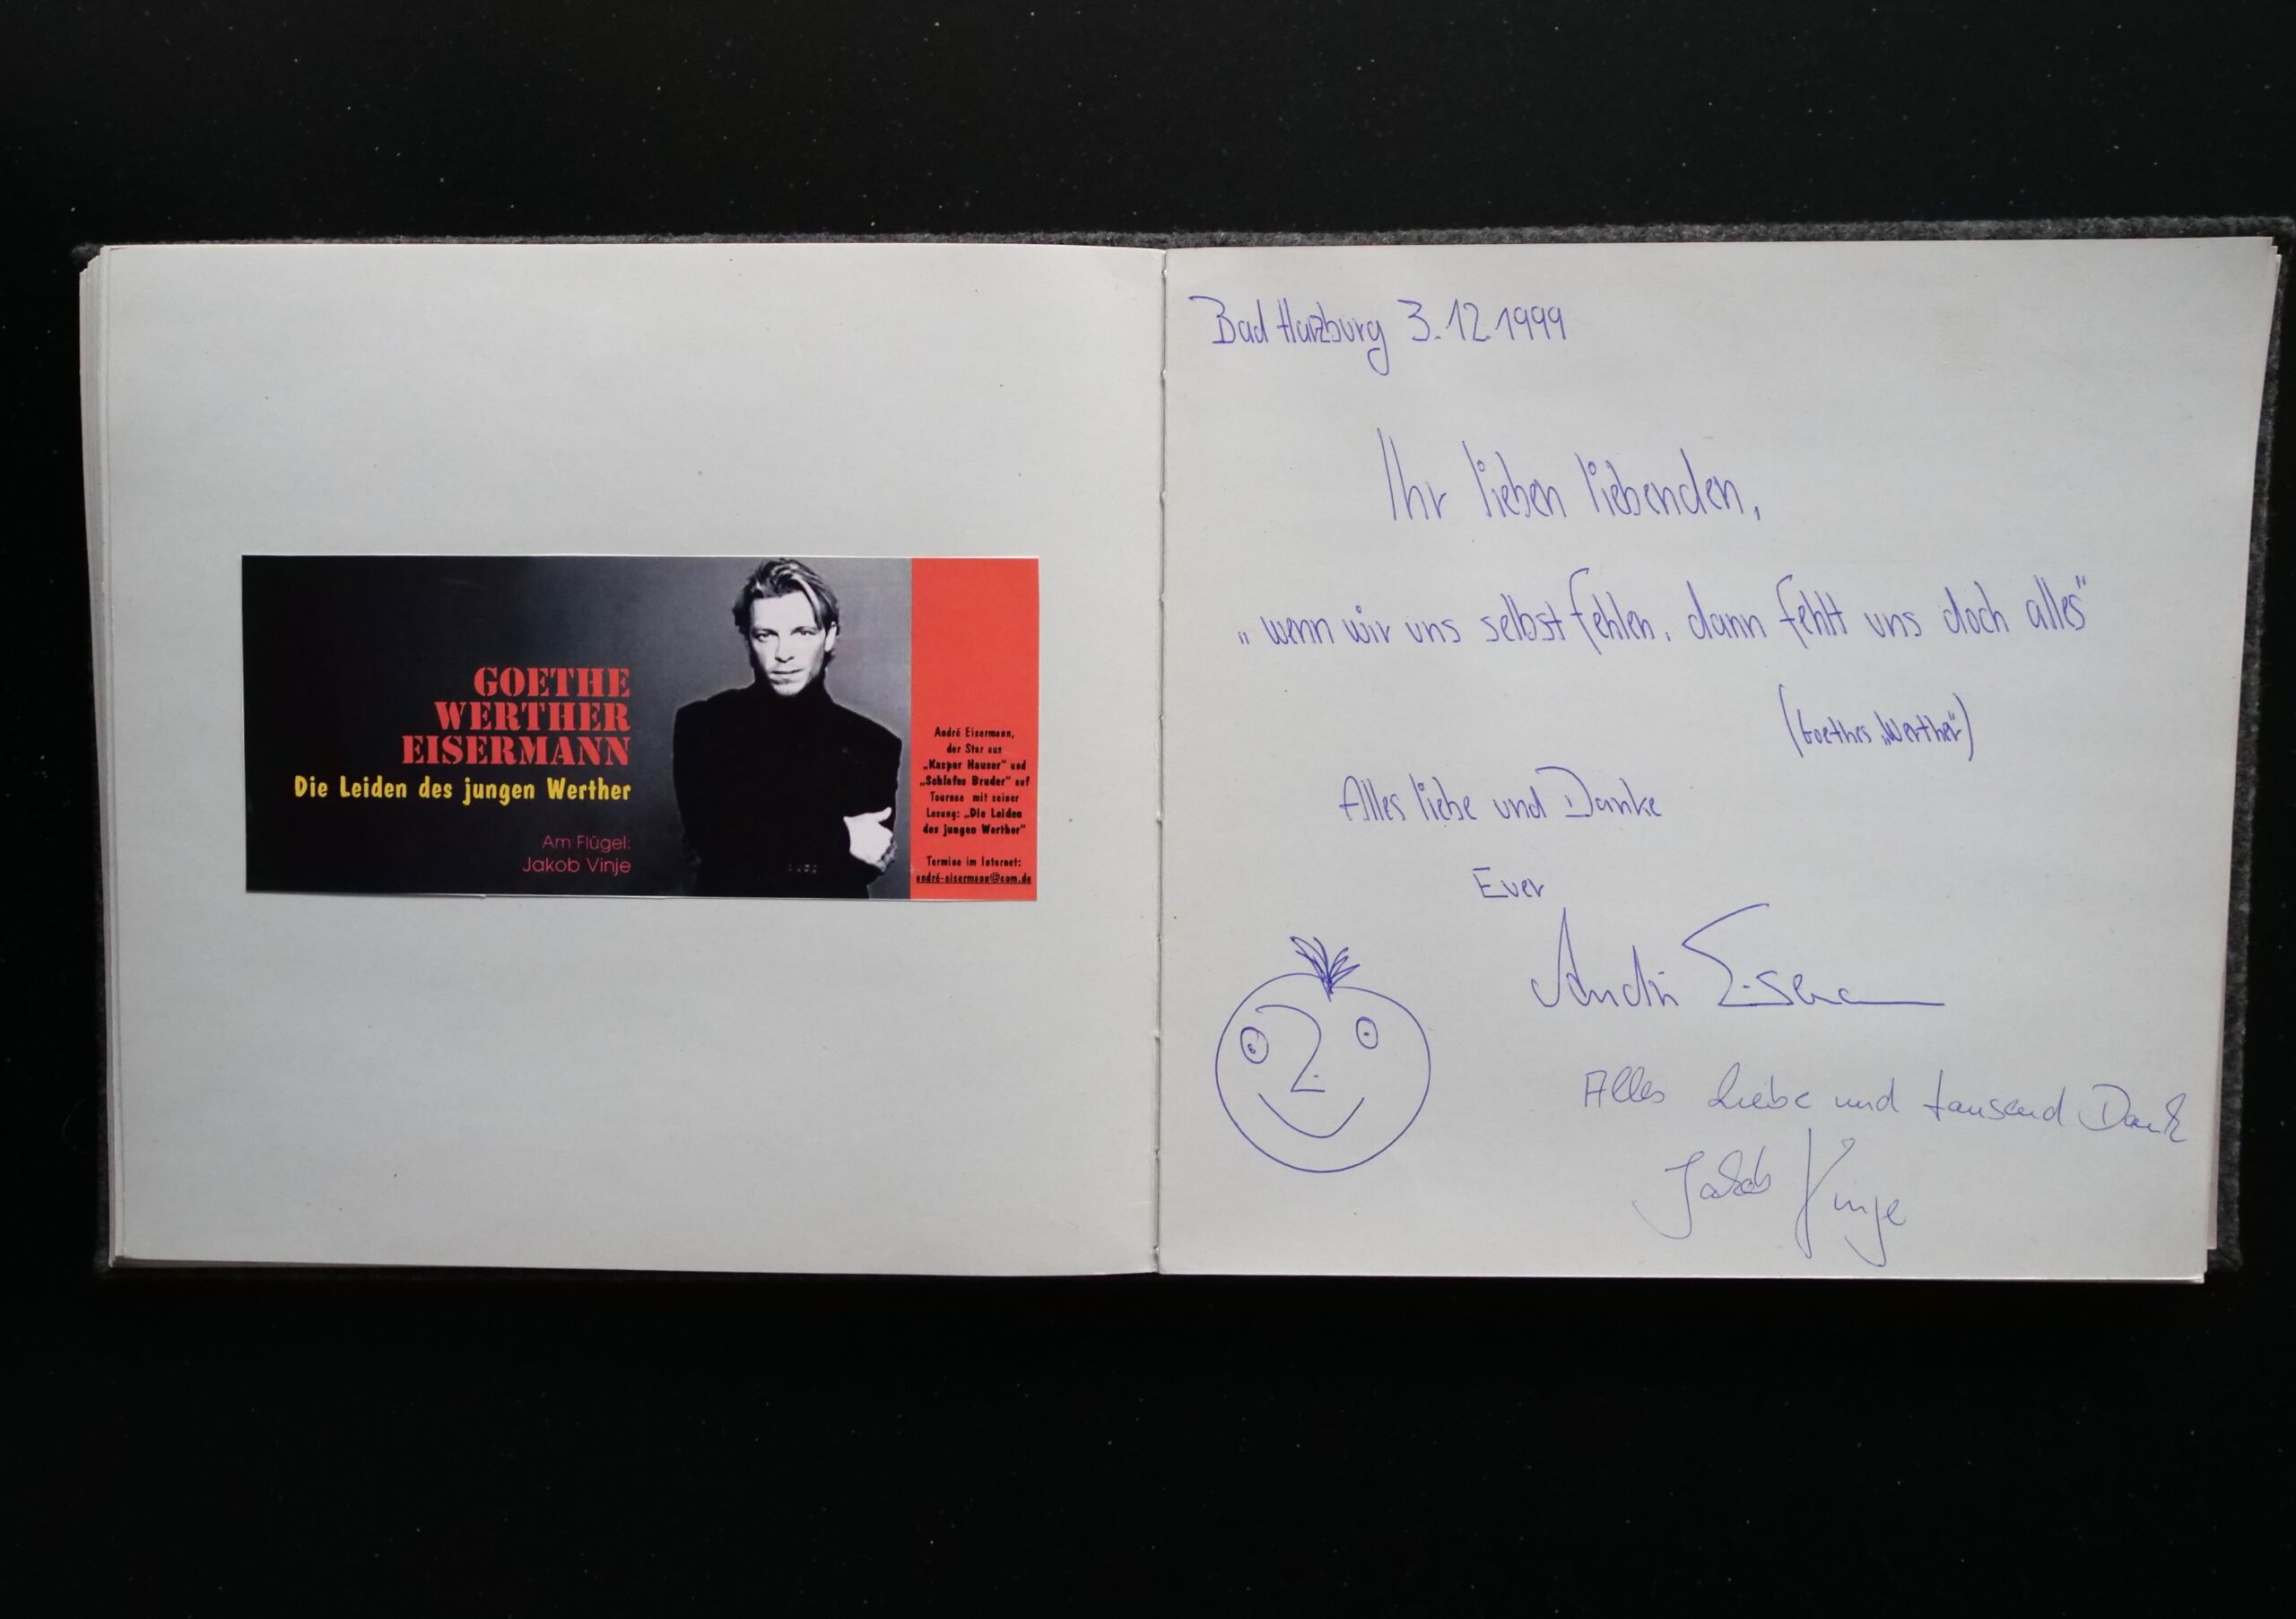 GOETHE
WERTHER
EISERMANN
Die Leiden des jungen Werther
Am Flügel:
Jakob Vinje
André Eisermann,
der Star aus
„Kaspar Hauser" und
„Schlafes Bruder" auf
Tournee mit seiner
Lesung: „Die Leiden
des jungen Werther"
Termine im Internet:
andré-eisermann@com.de
Bad Harzburg 3.12.1999
Ihr lieben liebenden,
„wenn wir uns selbst fehlen, dann fehlt uns doch alles"
(Goethes „Werther")
Alles liebe und Danke
Euer
André Eisermann
Alles Liebe und tausend Dank
Jakob Vinje